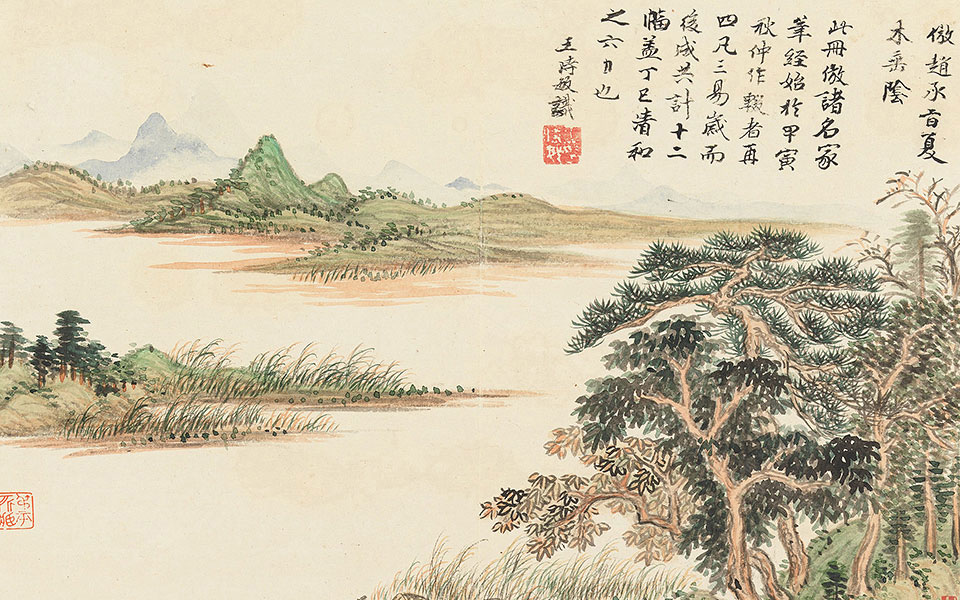 倣趙承旨夏
木垂陰
此冊倣諸名家
筆經始於甲寅
秋仲作輟者再
四凡三易歲而
後成共計十二
幅盖丁巳清和
之六日也
王時敏識